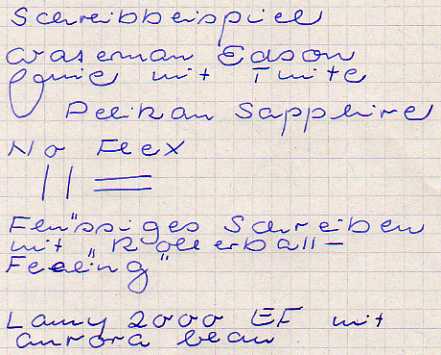 Schreibbeispiel
Waterman Edson
Feine mit Tinte
Pelikan Sapphire
No Flex
Flüssiges Schreiben
mit „Rollerball-
Feeling"
Lamy 2000 EF mit
aurora blau